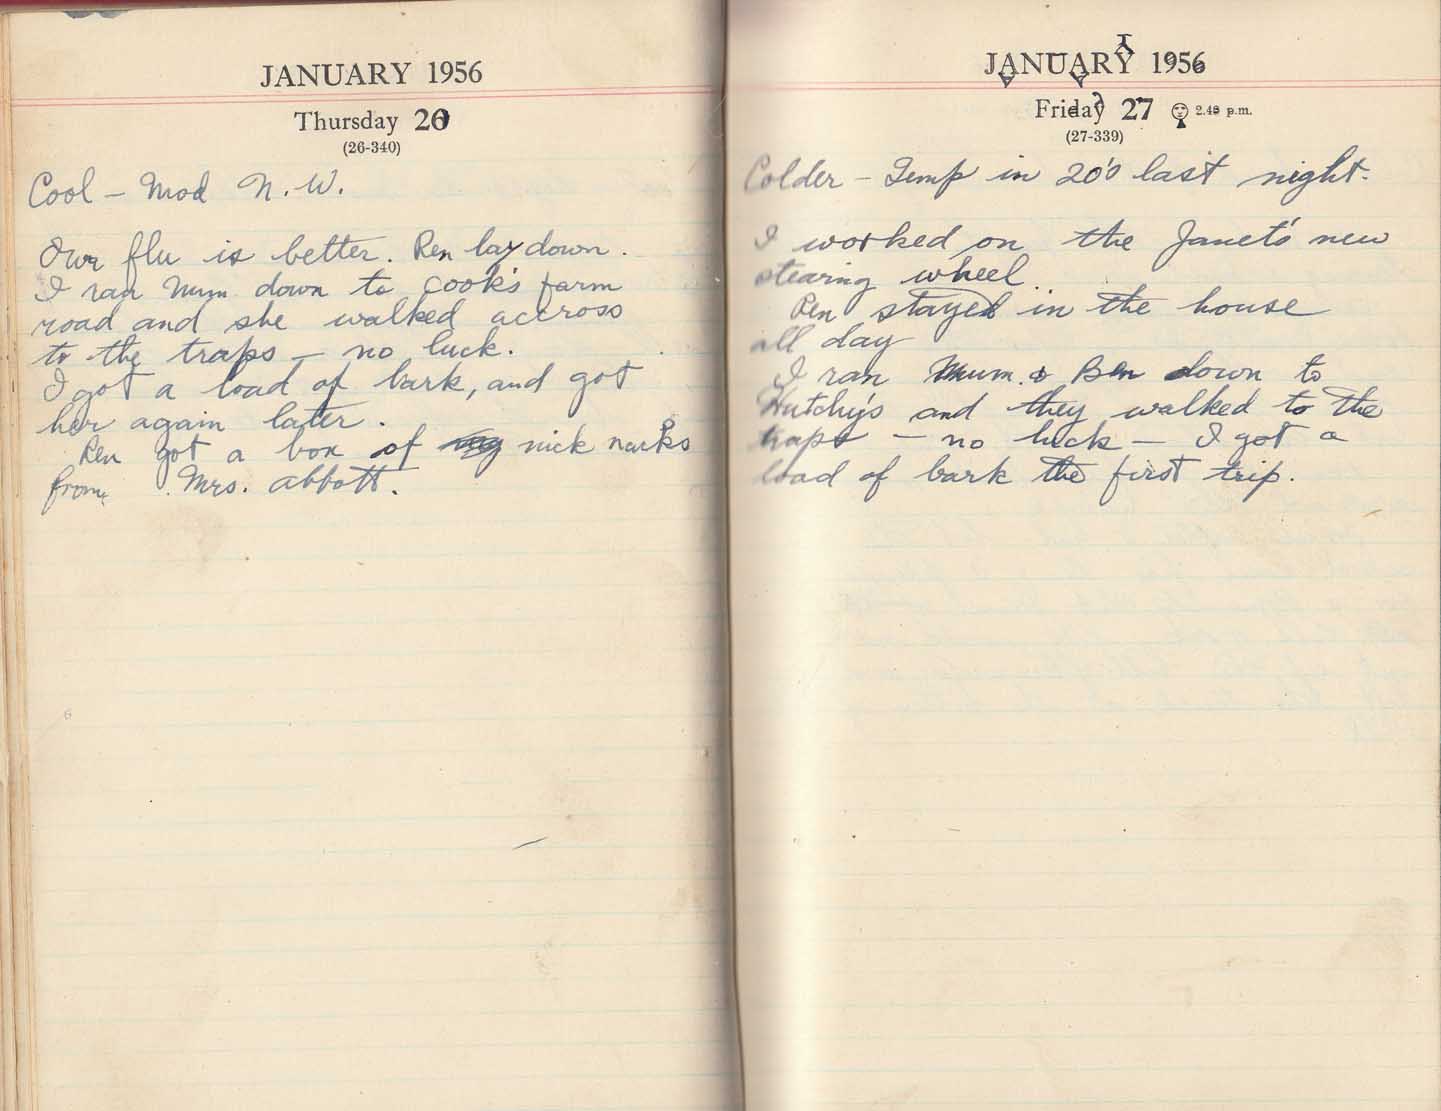 JANUARY 1956
Thursday 26
(26-340)
Cool - Mod N.W.
Our flu is better. Ren lay down.
I ran Mum down to Cook's farm
road and she walked accross
to the traps - no luck.
I got a load of bark, and got
her again later.
Ren got a box of nick narks
from Mrs. Abbott.
JANUARY 1956
Friday 27 2.40 p.m.
(27-339)
Colder - Temp in 20's last night.
I worked on the Janet's new
stearing wheel
Ren stayed in the house
all day
I ran Mum & Ben down to
Hutchy's and they walked to the
traps - no luck - I got a
load of bark the first trip.